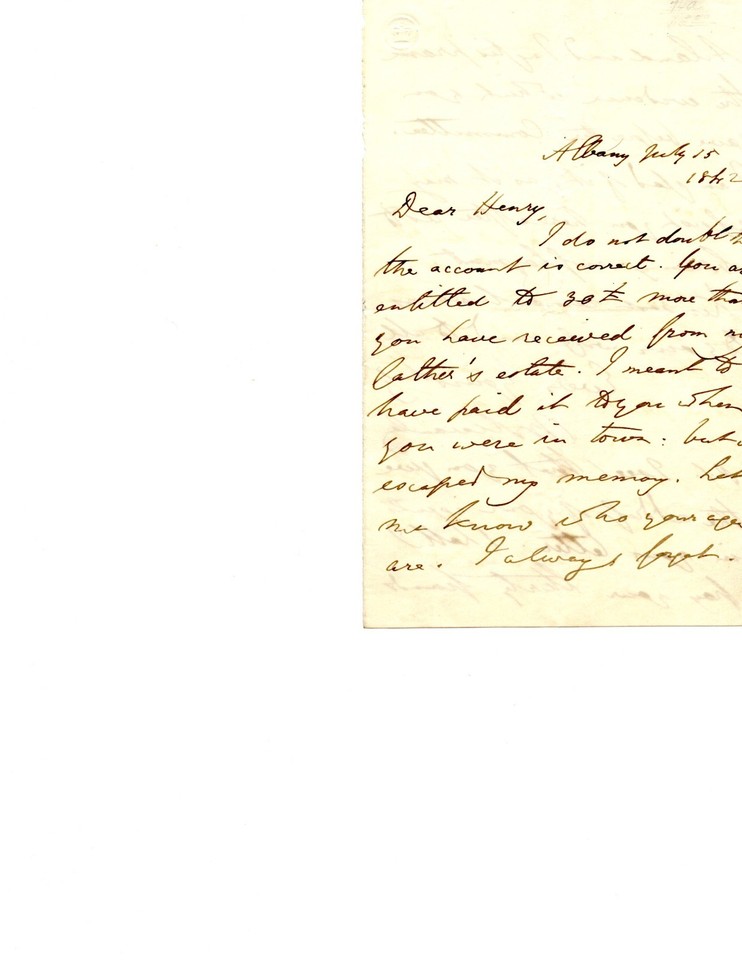 Albany July 15
1842
Dear Henry,
I do not doubt
the account is correct. You
entitled to more
you have received from
father's estate. I meant to
have paid it to you when
you were in town: but
escaped my memory. Let
me know who your
are. I always forget.